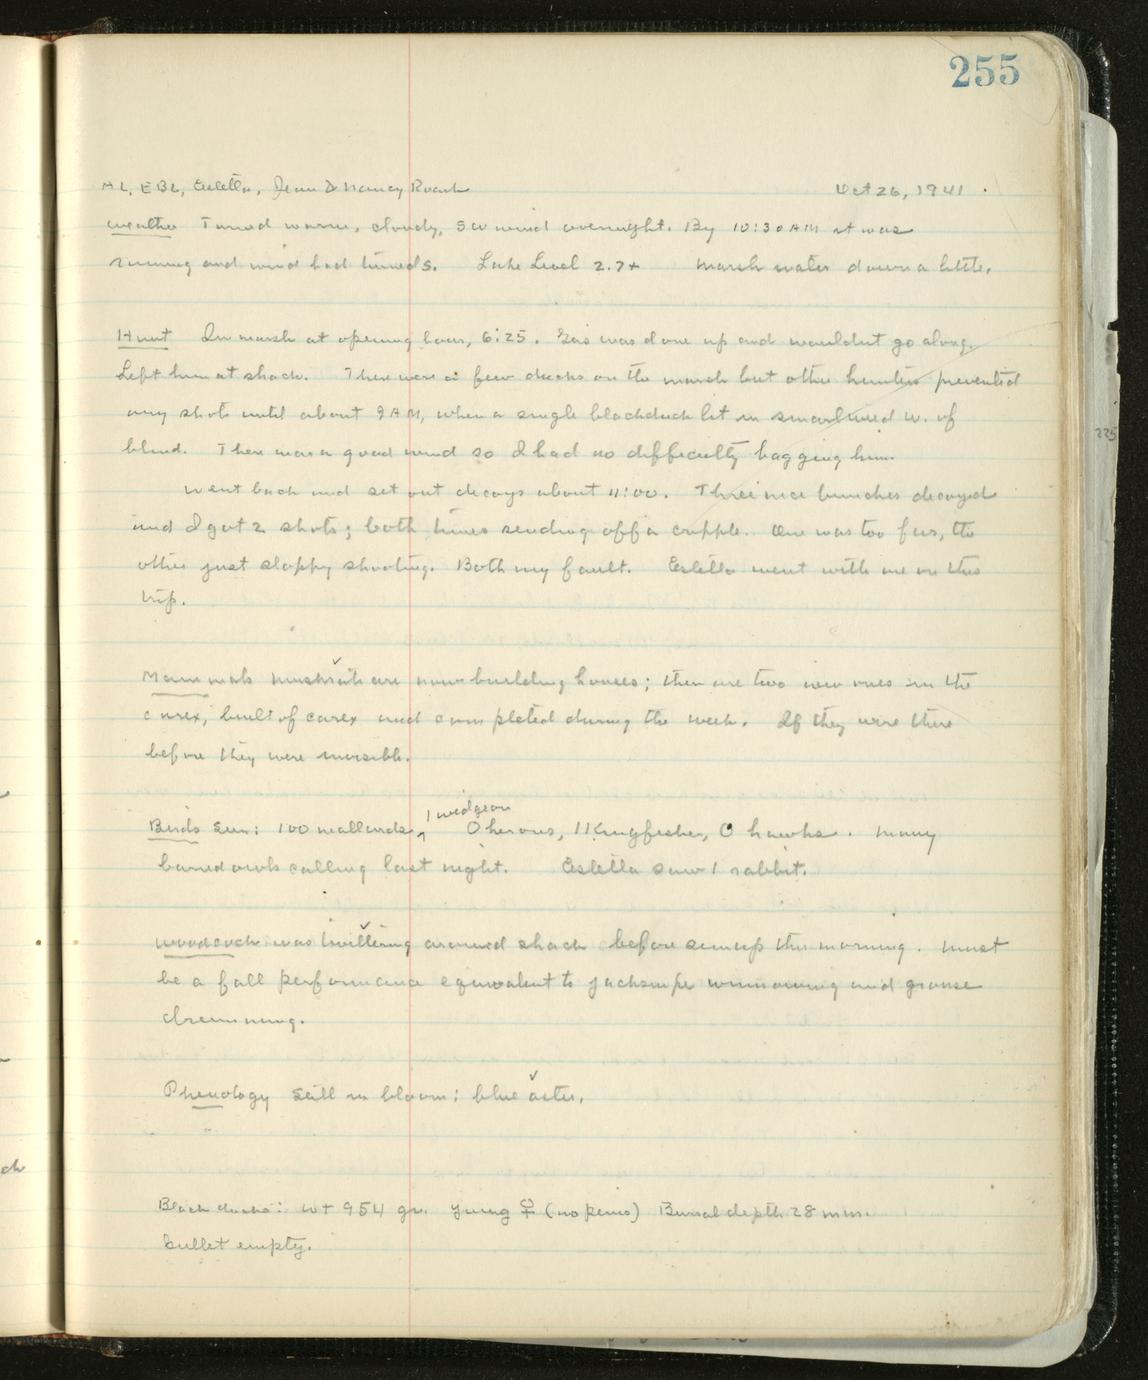 255
AL, EBL, Estella, Jean & Nancy Roark Oct 26, 1941.
Weather Turned warm, cloudy, SW wind overnight. By 10:30 AM it was
raining and wind had turned S. Lake Level 2.7+ Marsh water down a little.
Hunt In marsh at opening hour, 6:25. Gus was done up and wouldnt go along.
Left him at shack. There were a few ducks on the marsh but other hunters prevented
any shots until about 9 AM, when a single blackduck lit in smartweed W. of
blind. There was a good wind so I had no difficulty bagging him.
Went back and set out decoys about 11:00. Three nice bunches decoyed
and I got 2 shots; both times sending off a cripple. One was too far, the
other just sloppy shooting. Both my fault. Estella went with me on this
trip.
Mammals muskrats are now building houses; there are two new ones in the
carex, built of carex and completed during the week. If they were there
before they were invisible.
1 widgeon
Birds Seen: 100 mallards, 0 herons, 1 Kingfisher, 0 hawks. Many
barred owls calling last night. Estella saw 1 rabbit.
Woodcock was twittering around shack before sunup this morning. Must
be a fall performance equivalent to jacksnipe winnowing and grouse
drumming.
Phenology Still in bloom: blue aster.
Black duck: wt 954 gr. young ♀ (no penis) Bursal depth 28 mm.
Gullet empty.
225
ch